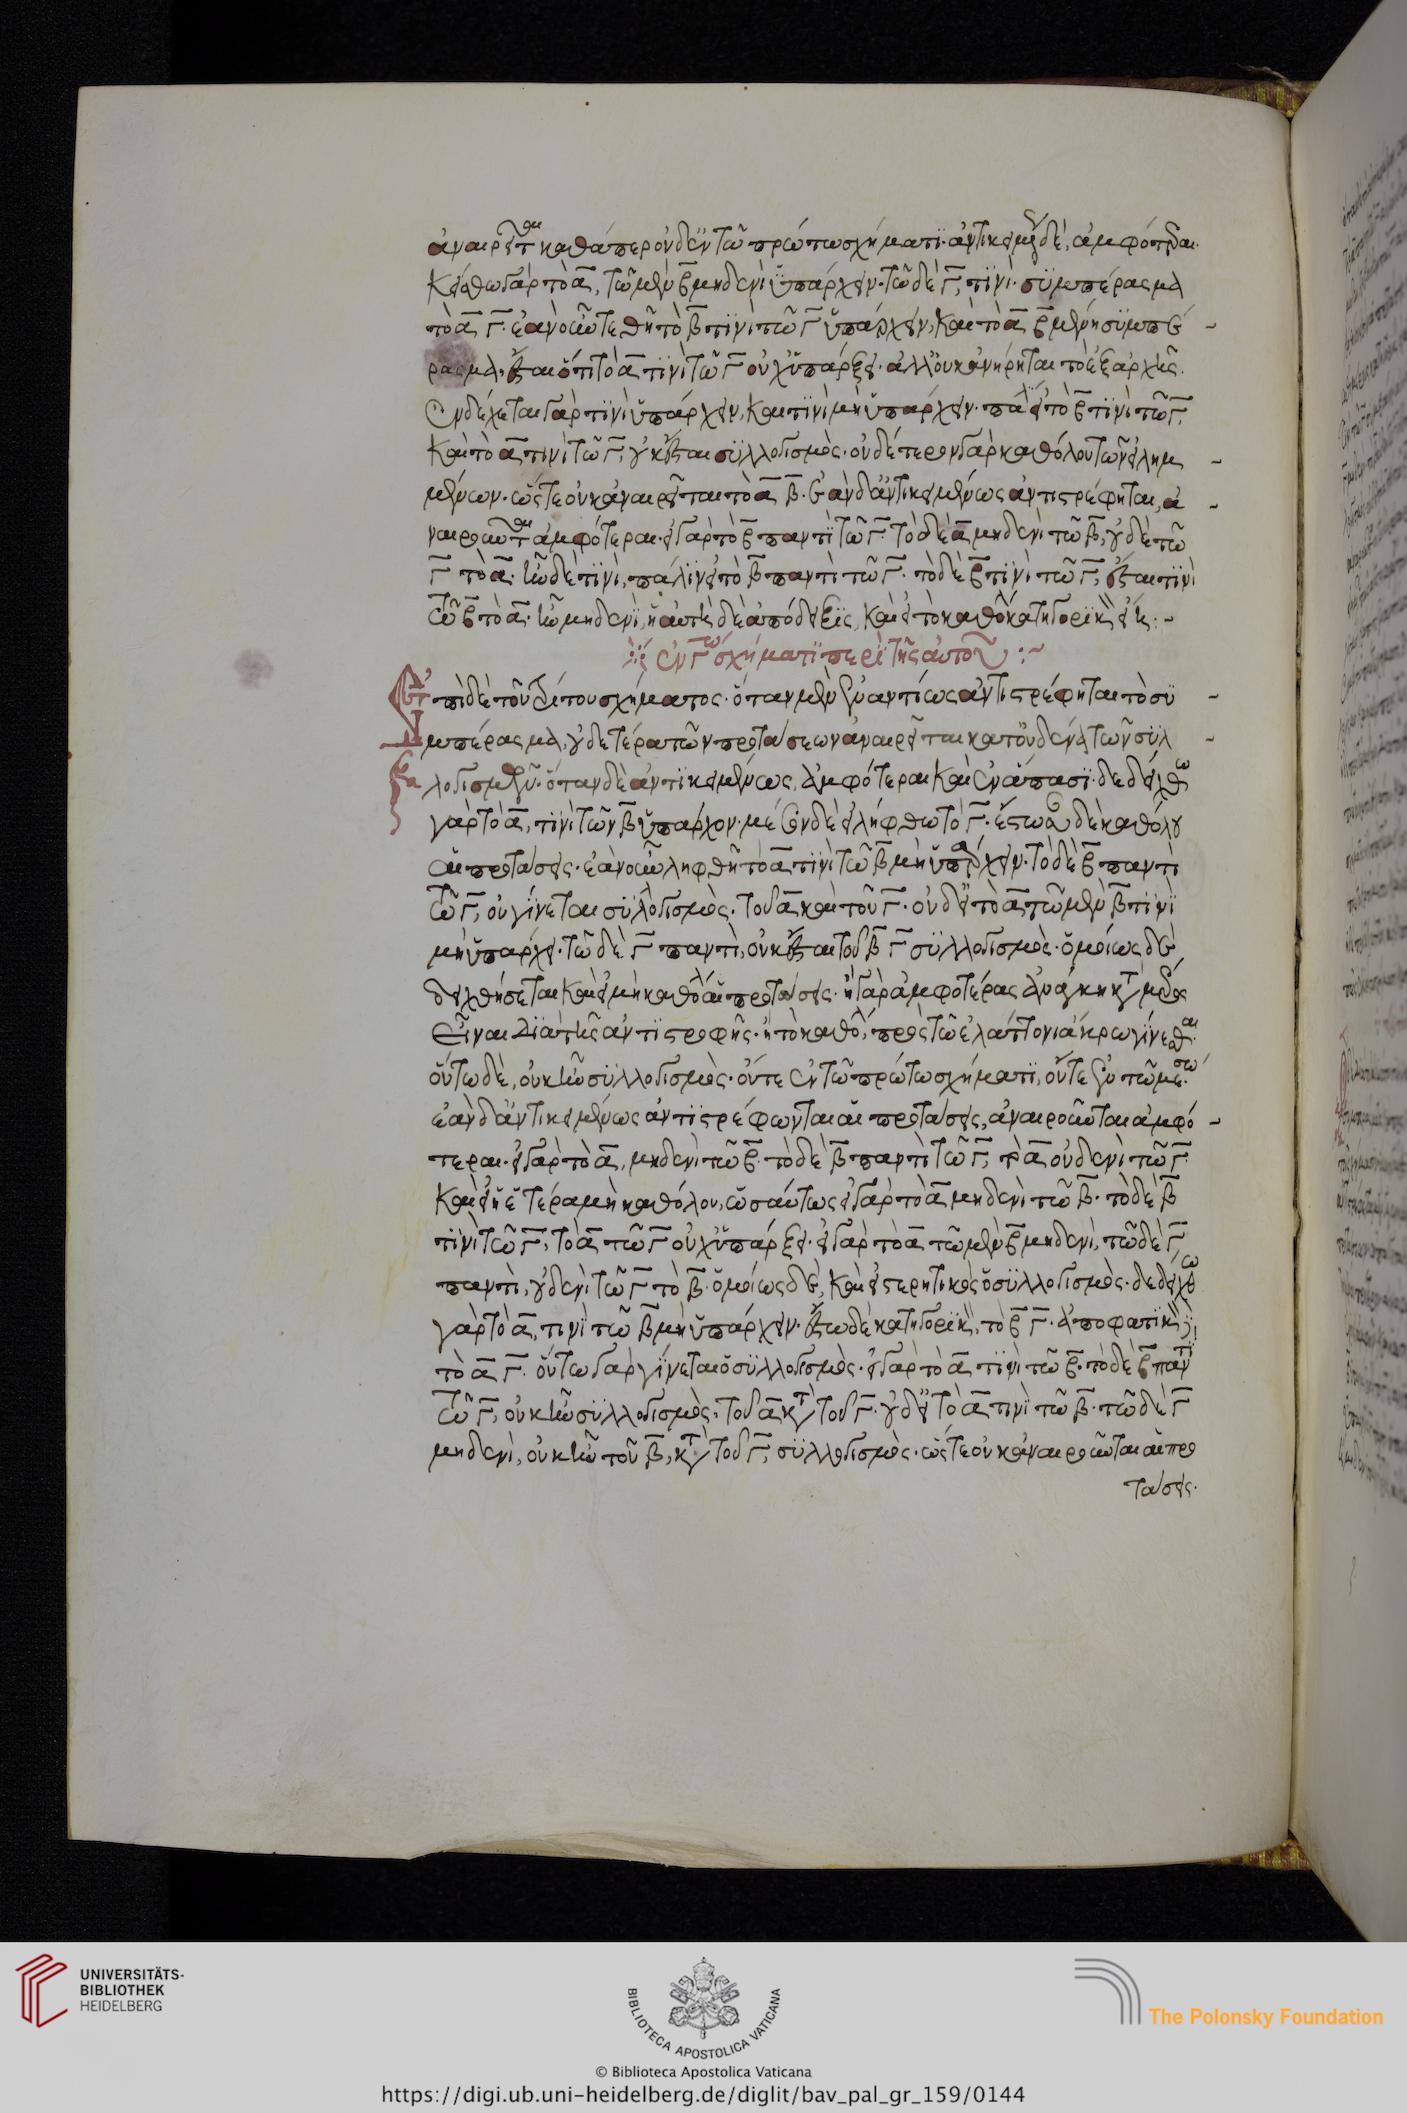 ἀναιρεῖται καθάπερ οὐδ' ἐν τῶ πρώτω σχήματι· ἀντικειμένου δὲ, ἀμφότεραι·
Κείσθω γὰρ τὸ α, τῶ μὲν β μηδενὶ ὑπάρχειν· τῶ δὲ γ, τινί· συμπέρασμα
τὸ α γ· ἐὰν οὖν τεθῆ τὸ β τινὶ τῶ γ ὑπάρχειν, καὶ τὸ α β μένη συμπέ-
ρασμα, ἔσται ὅτι τὸ α τινὶ τῶ γ οὐχ ὑπάρξει· ἀλλ' οὐκ ἀνήρηται τὸ ἐξ ἀρχῆς·
Ἐνδέχεται γὰρ τινὶ ὑπάρχειν, καὶ τινὶ μὴ ὑπάρχειν· πάλιν εἰ τὸ β τινὶ τῶ γ,
Καὶ τὸ α τινὶ τῶ γ, οὐκ ἔσται συλλογισμός· οὐδέτερον γὰρ καθόλου τῶν εἰλημ-
μένων· ὥστε οὐκ ἀναιρεῖται τὸ α β· ἐὰν δ' ἀντικειμένως ἀντιστρέφηται, ἀ-
ναιροῦνται ἀμφότεραι· εἰ γὰρ τὸ β παντὶ τῶ γ τὸ δὲ α μηδενὶ τῶ β, οὐδὲ τῶ
γ τὸ α· ἦν δὲ τινὶ, πάλιν εἰ τὸ β παντὶ τῶ γ· τὸ δὲ β τινὶ τῶ γ, ἔσται τινὶ
τῶ β τὸ α· ἦν μηδενὶ, ἡ αὐτὴ δὲ ἀπόδειξις, καὶ εἰ τὸ καθόλου κατηγορικὸν εἴη:-
Ἐν γω σχήματι περὶ τῆς αὐτοῦ :~
Ἐπὶ δὲ τοῦ τρίτου σχήματος· ὅταν μὲν ἐναντίως ἀντιστρέφηται τὸ συ-
μπέρασμα, οὐδετέρα τῶν προτάσεων ἀναιρεῖται κατ' οὐδένα τῶν συλ-
λογισμῶν· ὅταν δὲ ἀντικειμένως, ἀμφότεραι καὶ ἐν ἅπασι· δεδείχθω
γὰρ τὸ α, τινὶ τῶν β ὑπάρχον· μέσον δὲ εἰλήφθω τὸ γ· ἔστωσαν δὲ καθόλου
αἱ προτάσεις· ἐὰν οὖν ληφθῆ τὸ α τινὶ τῶ β μὴ ὑπάρχειν· τὸ δὲ β παντὶ
τῶ γ, οὐ γίνεται συλλογισμὸς· τοῦ α καὶ τοῦ γ· οὐδ' εἰ τὸ α τῶ μὲν β τινὶ
μὴ ὑπάρχει· τῶ δὲ γ παντὶ, οὐκ ἔσται τοῦ β γ συλλογισμὸς· ὁμοίως δὲ
δειχθήσεται καὶ εἰ μὴ καθόλου αἱ προτάσεις· ἢ γὰρ ἀμφοτέρας ἀνάγκη κατὰ μέρος
Εἶναι διὰ τῆς ἀντιστροφῆς· ἢ τὸ καθόλου, πρὸς τῶ ἐλάττονι ἄκρω γίνεσθαι
οὕτω δὲ, οὐκ ἦν συλλογισμὸς· οὔτε ἐν τῶ πρώτω σχήματι, οὔτε ἐν τῶ μέσω·
ἐὰν δ' ἀντικειμένως ἀντιστρέφωνται αἱ προτάσεις, ἀναιροῦνται ἀμφό-
τεραι· εἰ γὰρ τὸ α, μηδενὶ τῶ β· τὸ δὲ β παντὶ τῶ γ, τὸ α οὐδενὶ τῶ γ
Καὶ εἰ ἡ ἑτέρα μὴ καθόλου, ὡσαύτως εἰ γὰρ τὸ α μηδενὶ τῶ β· τὸ δὲ β
τινὶ τῶ γ, τὸ α τῶ γ οὐχ ὑπάρξει· εἰ γὰρ τὸ α τῶ μὲν β μηδενὶ, τῶ δὲ γ
παντὶ, οὐδενὶ τῶ γ τὸ β· ὁμοίως δὲ, καὶ εἰ στερητικὸς ὁ συλλογισμὸς· δεδείχθω
γὰρ τὸ α, τινὶ τῶ β μὴ ὑπάρχειν· ἔστω δὲ κατηγορικὸν, τὸ β γ· ἀποφατικὸν
τὸ α γ· οὕτω γὰρ γίνεται ὁ συλλογισμὸς· εἰ γὰρ τὸ α τινὶ τῶ β· τὸ δὲ β παντὶ
τῶ γ, οὐκ ἦν συλλογισμὸς, τοῦ α καὶ τοῦ γ· οὐδ' εἰ τὸ α τινὶ τῶ β· τῶ δὲ γ
μηδενὶ, οὐκ ἦν τοῦ β, καὶ τοῦ γ, συλλογισμὸς· ὥστε οὐκ ἀναιροῦνται αἱ προ
τάσεις·
UNIVERSITÄTS-
BIBLIOTHEK
HEIDELBERG
BIBLIOTECA APOSTOLICA VATICANA
The Polonsky Foundation
© Biblioteca Apostolica Vaticana
https://digi.ub.uni-heidelberg.de/diglit/bav_pal_gr_159/0144